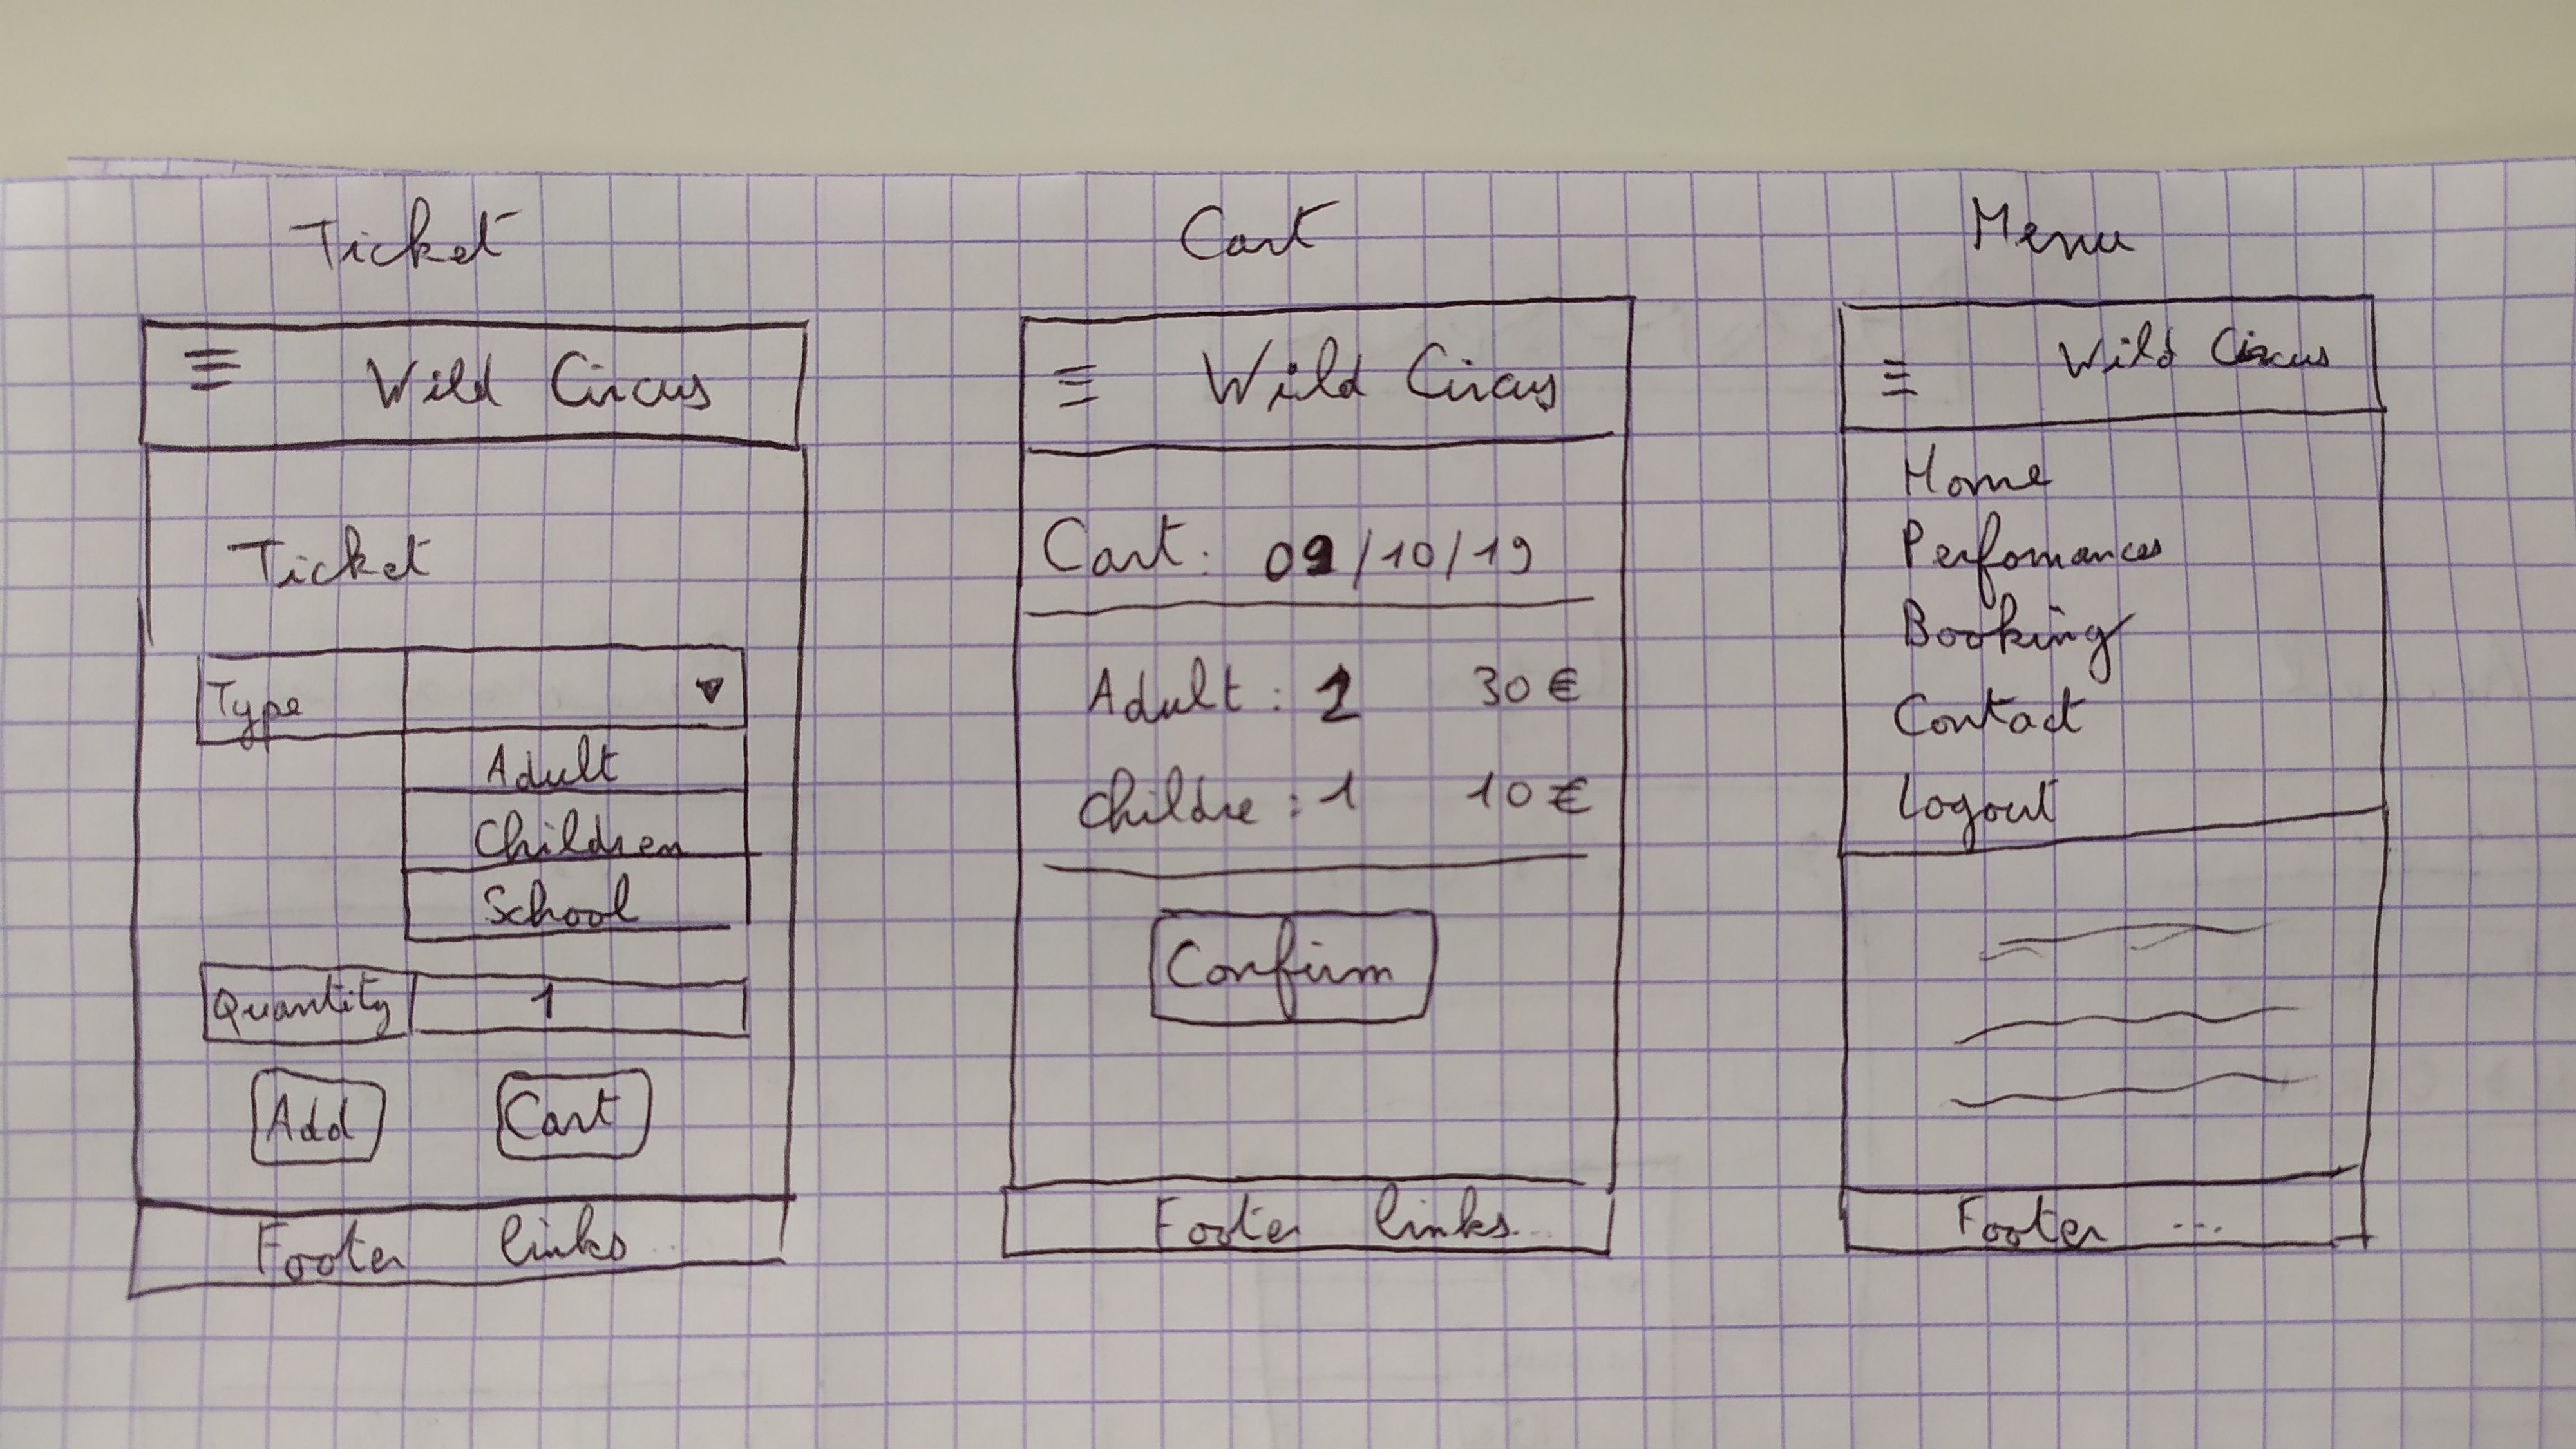 Ticket
☰ Wild Circus
Ticket
Type ▼
Adult
Children
School
Quantity 1
Add Cart
Footer links
Cart
☰ Wild Circus
Cart: 09/10/19
Adult : 2 30 €
Childre : 1 10 €
Confirm
Footer links...
Menu
☰ Wild Circus
Home
Perfomances
Booking
Contact
Logout
Footer ...